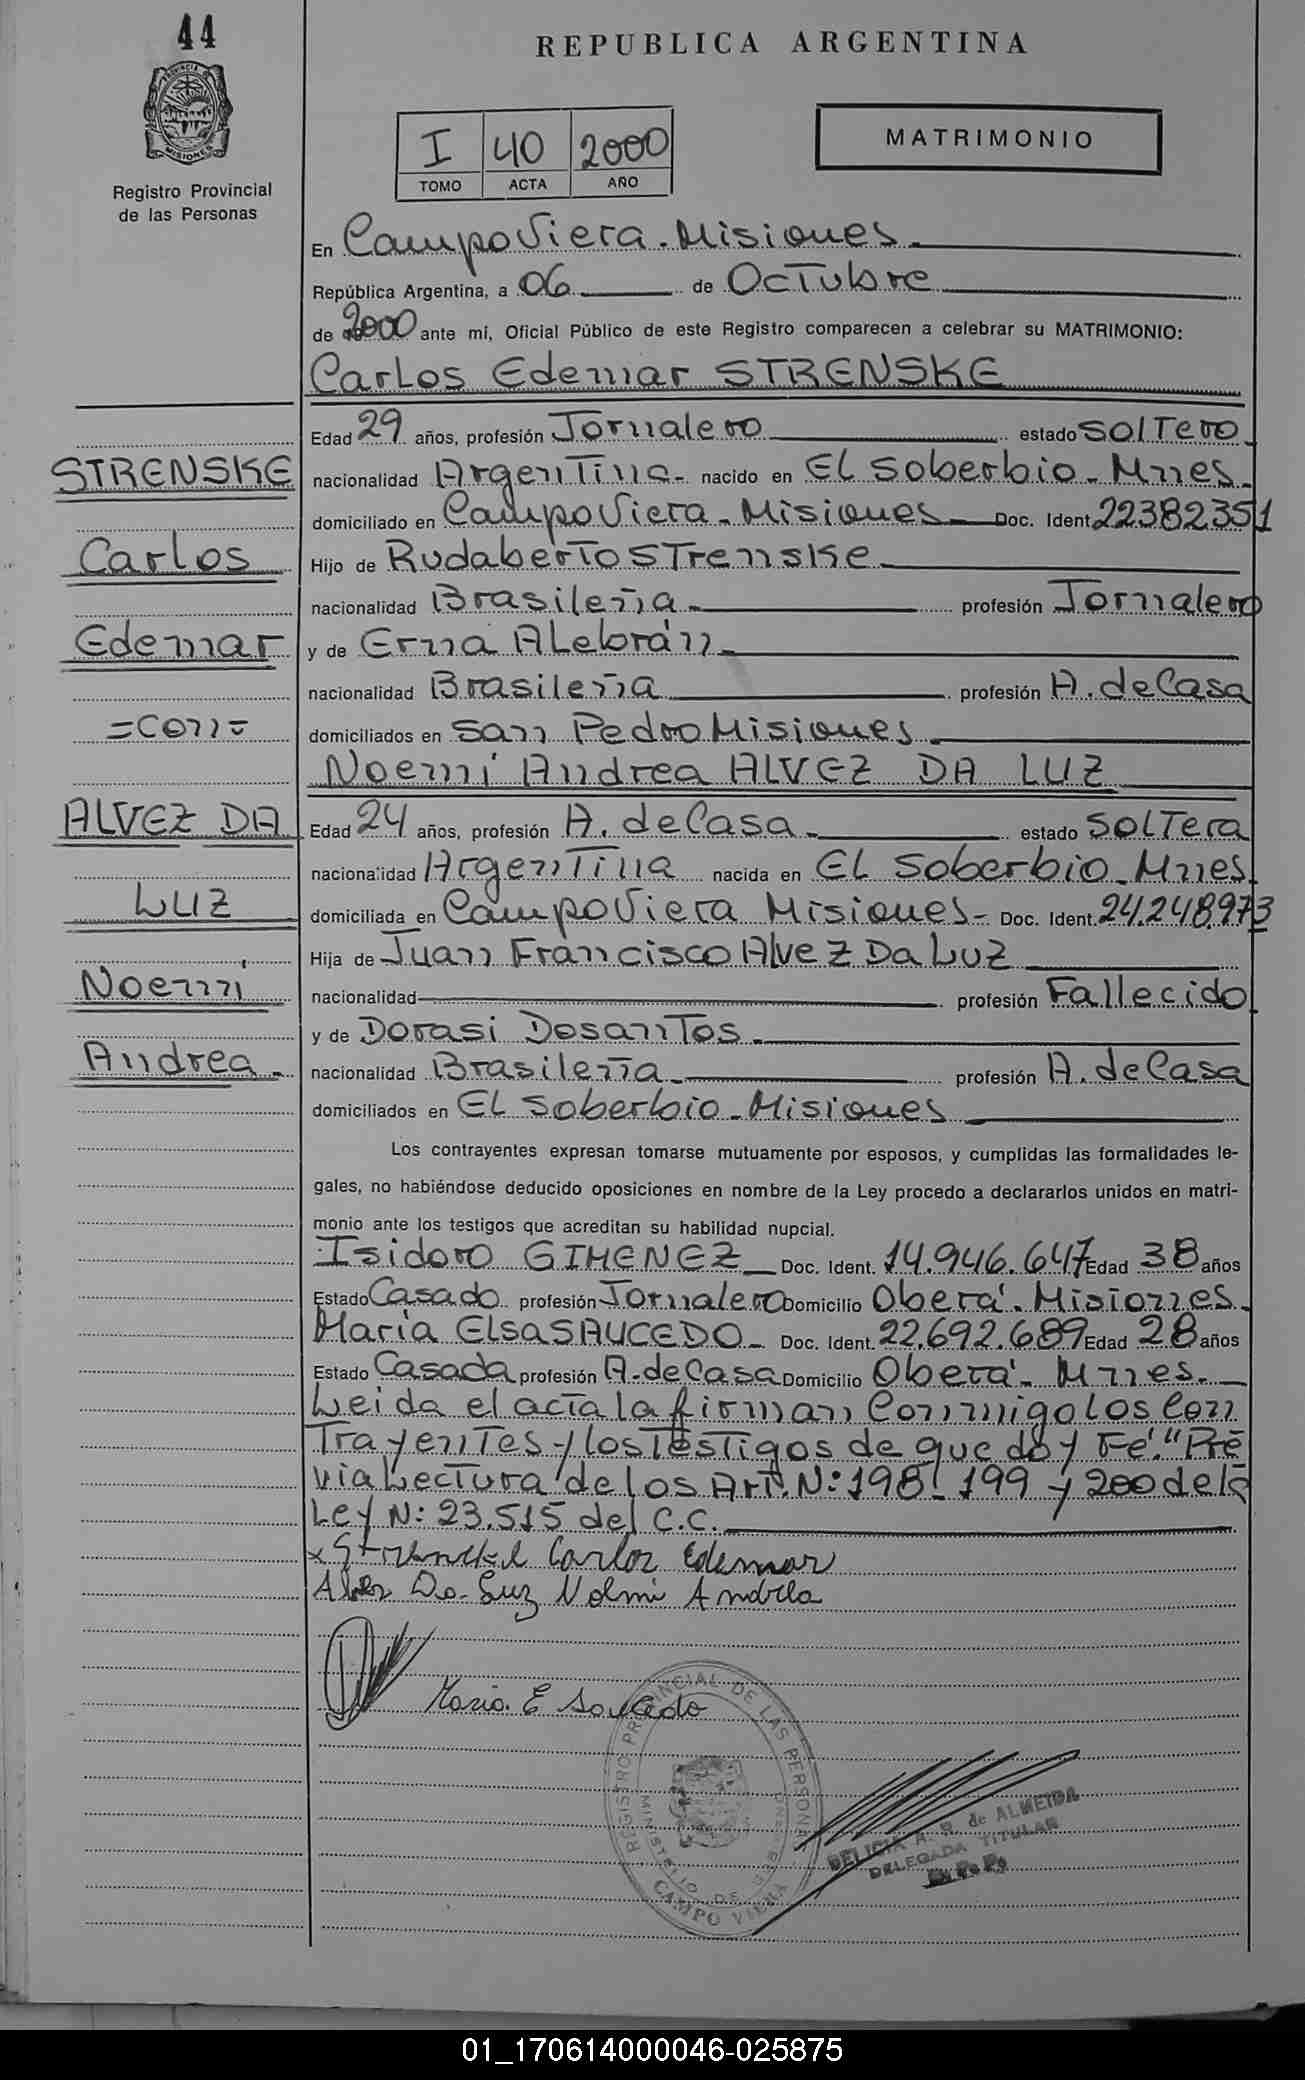 44
REPUBLICA ARGENTINA
PROVINCIA DE
MISIONES
Registro Provincial
de las Personas
I 40 2000
TOMO ACTA AÑO
MATRIMONIO
En Campo Viera. Misiones
República Argentina, a 06 de Octubre
de 2000 ante mi, Oficial Público de este Registro comparecen a celebrar su MATRIMONIO:
Carlos Edemar STRENSKE
Edad 29 años, profesión Jornalero estado Soltero
STRENSKE
nacionalidad Argentina nacido en El Soberbio - Mnes
domiciliado en Campo Viera - Misiones Doc. Ident. 22382351
Carlos
Hijo de Rudaberto Strenske
nacionalidad Brasileña profesión Jornalero
Edemar
y de Erna Alebrán
nacionalidad Brasileña profesión A. de Casa
=con=
domiciliados en San Pedro Misiones
Noemí Andrea ALVEZ DA LUZ
ALVEZ DA
Edad 24 años, profesión A. de Casa estado Soltera
nacionalidad Argentina nacida en El Soberbio - Mnes
LUZ
domiciliada en Campo Viera Misiones - Doc. Ident. 24.248.973
Hija de Juan Francisco Alvez Da Luz
Noemí
nacionalidad profesión Fallecido
y de Dorasi Dosantos
Andrea
nacionalidad Brasileña profesión A. de Casa
domiciliados en El Soberbio - Misiones
Los contrayentes expresan tomarse mutuamente por esposos, y cumplidas las formalidades le-
gales, no habiéndose deducido oposiciones en nombre de la Ley procedo a declararlos unidos en matri-
monio ante los testigos que acreditan su habilidad nupcial.
Isidoro GIMENEZ Doc. Ident. 14.946.647 Edad 38 años
Estado Casado profesión Jornalero Domicilio Oberá - Misiones
María Elsa SAUCEDO - Doc. Ident. 22.692.689 Edad 28 años
Estado Casada profesión A. de Casa Domicilio Oberá - Mnes.
Leida el acta la firman Conmigo los Con
Trayentes y los Testigos de que doy Fé." Pre
via Lectura de los Art. N: 198 - 199 y 200 de la
Ley N: 23.515 del C.C.
x Strenske Carlos Edemar
Alvez Da Luz Noemi Andrea
Maria E Saucedo
REGISTRO PROVINCIAL DE LAS PERSONAS
MINISTERIO DE
CAMPO VIERA
DELICIA A. R. de ALMEIDA
DELEGADA TITULAR
R. P. P.
01_170614000046-025875